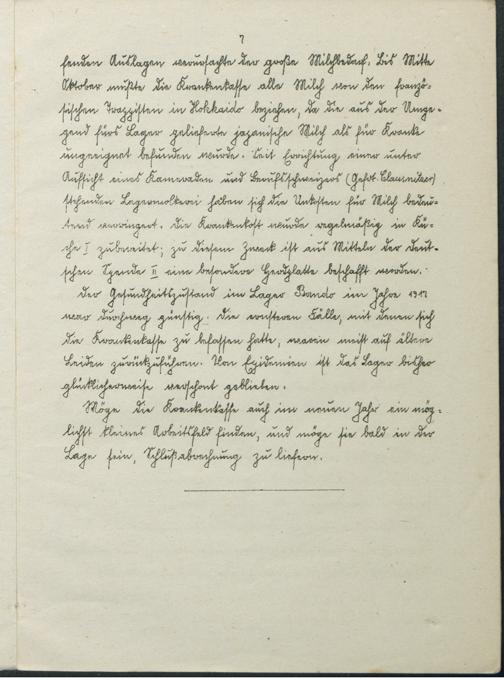 7
fenden Auslagen verursachte der große Milchbedarf. Bis Mitte
Oktober mußte die Krankenkasse alle Milch von den franzö-
sischen Trappisten in Hokkaido beziehen, da die aus der Umge-
gend fürs Lager gelieferte japanische Milch als für Kranke
ungeeignet befunden wurde. Seit Errichtung einer unter
Aufsicht eines Kameraden und Berufsschweizers (Gefr. Claussnitzer)
stehenden Lagermolkerei haben sich die Unkosten für Milch bedeu-
tend verringert. Die Krankenkost wurde regelmäßig in Kü-
che I zubereitet; zu diesem Zweck ist aus Mitteln der Deut-
schen Spende II eine besondere Herdplatte beschafft worden.
Der Gesundheitszustand im Lager Bando im Jahre 1917
war durchweg günstig. Die ernsteren Fälle, mit denen sich
die Krankenkasse zu befassen hatte, waren meist auf ältere
Leiden zurückzuführen. Von Epidemien ist das Lager bisher
glücklicherweise verschont geblieben.
Möge die Krankenkasse auch im neuen Jahr ein mög-
lichst kleines Arbeitsfeld finden, und möge sie bald in der
Lage sein, Schlußabrechnung zu liefern.